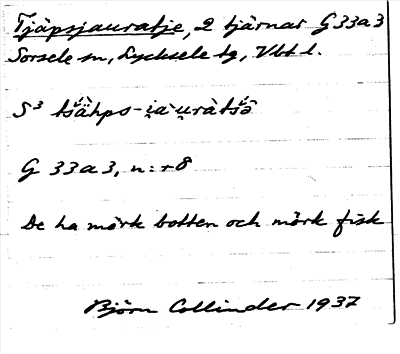 Tjäpsjauratje, 2 tjärnar G 33a3
Sorsele sn, Lycksele tg, Vbt l.
S³ tšähps-i̯àu̯ràtšə̂
G 33a3, n:r 8
De ha mörk botten och mörk fisk
Björn Collinder 1937